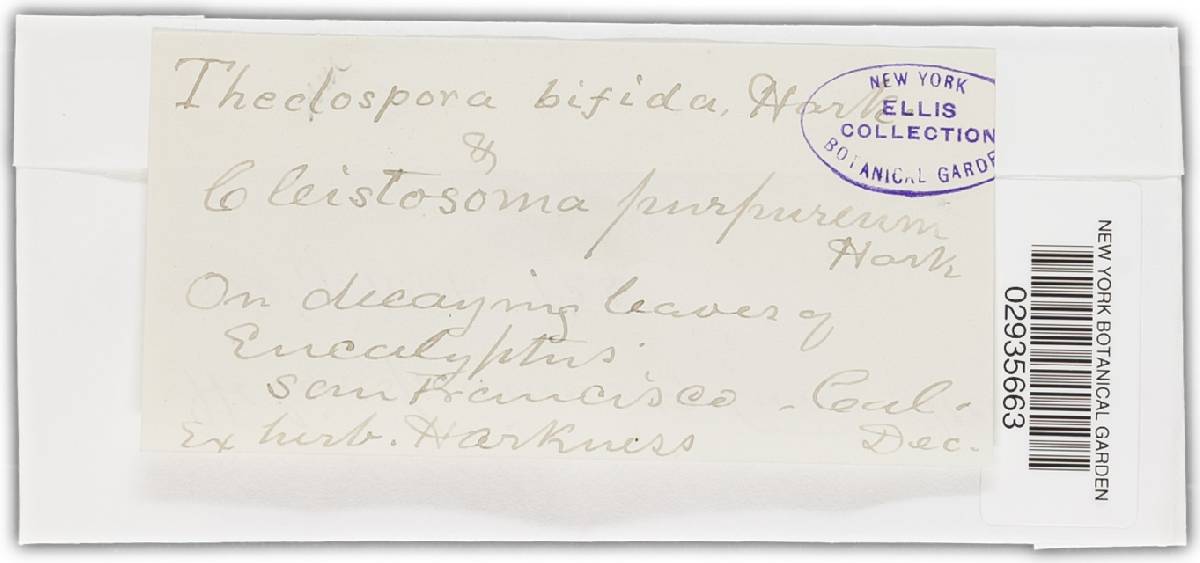 Theclospora bifida, Hark.
&
Cleistosoma purpureum
Hark
On decaying leaves of
Eucalyptus.
San Francisco - Cal.
Ex herb. Harkness Dec.
NEW YORK
ELLIS
COLLECTION
BOTANICAL GARDE
NEW YORK BOTANICAL GARDEN
02935663